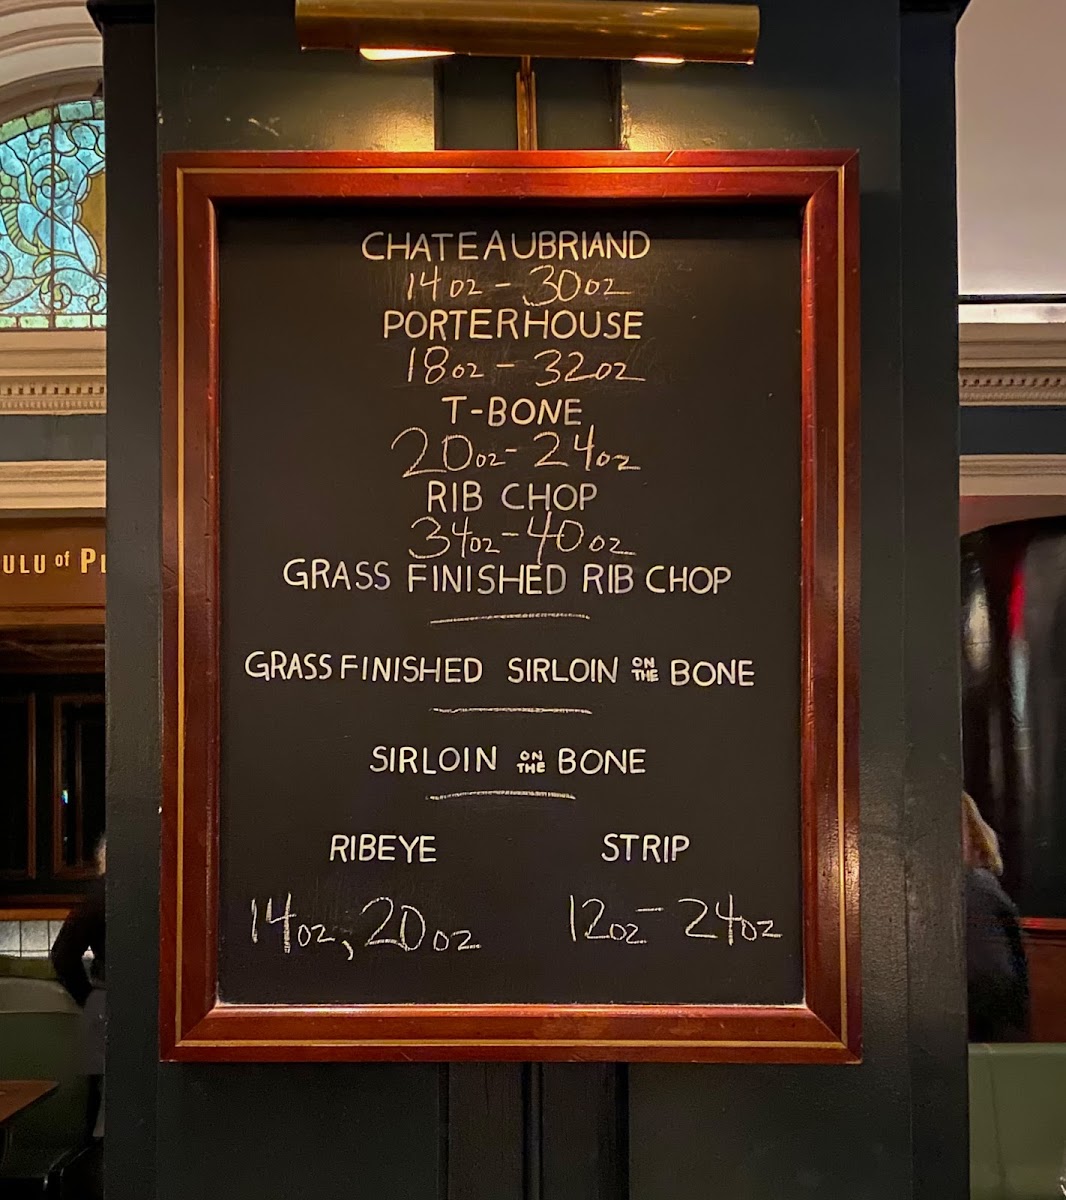 CHATEAUBRIAND
14oz - 30oz
PORTERHOUSE
18oz - 32oz
T-BONE
20oz - 24oz
RIB CHOP
34oz - 40oz
GRASS FINISHED RIB CHOP
GRASS FINISHED SIRLOIN ON THE BONE
SIRLOIN ON THE BONE
RIBEYE STRIP
14oz, 20oz 12oz - 24oz
ULU of P